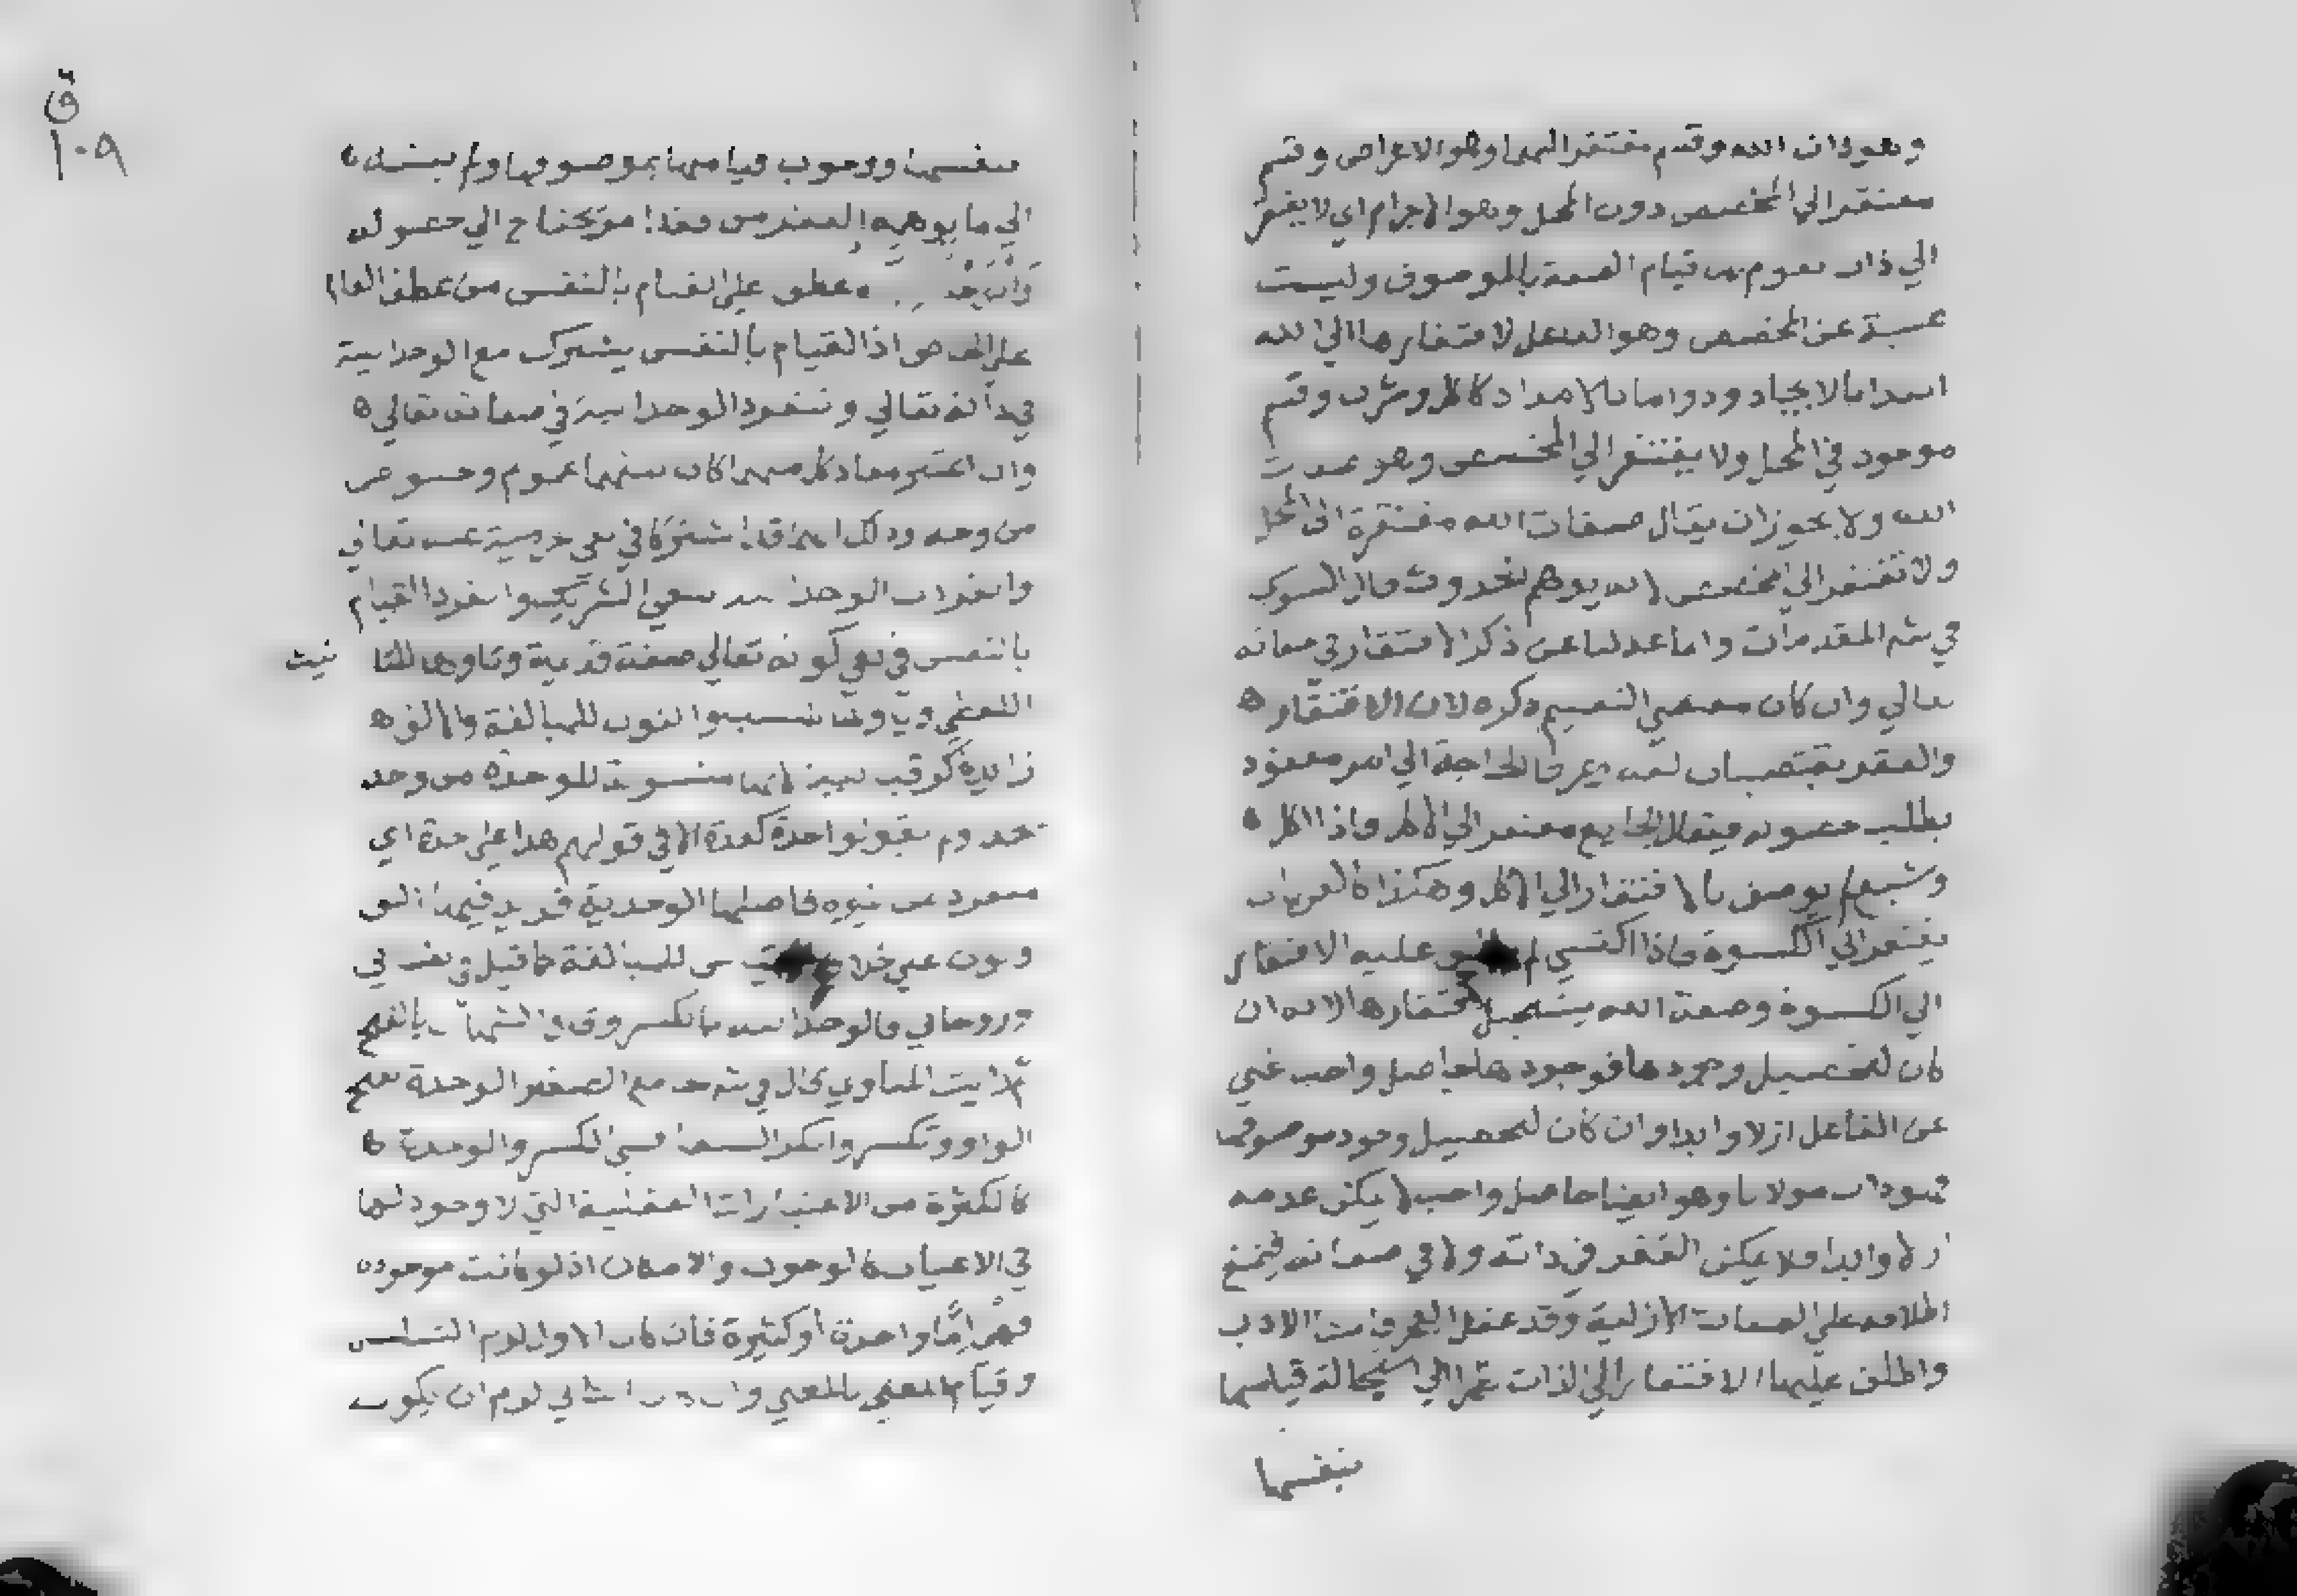 وهو ذات الله وقسم مفتقر اليهما وهو الاعراض وقسم
مفتقر الي المخصص دون المحل وهو الاجرام اي لا يفتقر
الي ذات يقوم بها قيام الصفة بالموصوف وليست
غنية عن المخصص وهو الفاعل لافتقارها الي الله
ابتدا بالايجاد ودواما بالامداد وقسم
موجود في المحل ولا يفتقر الي المخصص وهو صفات
الله ولا يجوز ان يقال صفات الله مفتقرة الي المحل
ولا تفتقر الي المخصص لانه يوهم الحدوث قال السنوسي
في شرح المقدمات واما عدلنا عن ذكر الافتقار في صفاته
تعالي وان كان مقتضي التقسيم ذكره لان الافتقار
والفقر يقتضيان لغة وعرفا الحاجة الي امر مفقود
يطلب حصوله فيقال الجايع مفتقر الي الاكل فاذا اكل
وشبع لم يوصف بالافتقار الي الاكل وهكذا العريان
يفتقر الي الكسوة فاذا اكتسي لم عليه الافتقار
الي الكسوة وصفة الله يستحيل افتقارها لانه ان
كان لتحصيل وجودها فوجودها حاصل واجب غني
عن الفاعل ازلا وابدا وان كان لتحصيل وجود موصوفها
فهو ذات مولانا وهو ايضا حاصل واجب لا يمكن عدمه
ازلا وابدا فلا يمكن الفقر في ذاته ولا في صفاته فيمتنع
اطلاقه علي الصفات الازلية وقد غفل الفخر في الادب
واطلق عليها الافتقار الي الذات نظرا الي استحالة قيامها
بنفسها
ق
١٠٩
بنفسها ووجوب قيامها بموصوفها ولم ينتبه
الي ما يوهمه الفقر من فقد امر يحتاج الي حصوله
عطف علي القيام بالنفس من عطف العام
علي الخاص اذ القيام بالنفس يشترك مع الوحدانية
في ذاته تعالي وتنفرد الوحدانية في صفاته تعالي
وان اعتبر مفاد كل منهما كان بينهما عموم وخصوص
من وجه وذلك انهما قد اشتركا في نفي عنه تعالي
وانفردت الوحدانية بنفي الشريك وانفرد القيام
بالنفس في نفي كونه تعالي صفة قديمة وتاوها للتا نيث
اللفظي وياوها للنسب والنون للمبالغة والالف
زايدة كرقبانية لانها منسوبة للوحدة من وحد
يحد وحدة كعدة الا في قولهم هذا علي حدة اي
منفرد عن غيره فاصلها الوحدية فزيد فيها الف
ونون علي خلاف القياس للمبالغة كما قيل في
وروحاني فالوحدانية
رايت المناوي قال في شرحه مع الصغير الوحدة بفتح
الواو وتكسر وانكر السفاقسي الكسر والوحدة
كالكثرة من الاعتبارات العقلية التي لا وجود لها
في الاعيان كالوجوب والامكان اذ لو كانت موجودة
فهي اما واحدة او كثيرة فان كان الاول لزم التسلسل
وقيام المعني بالمعني وان كان الثاني لزم ان يكون